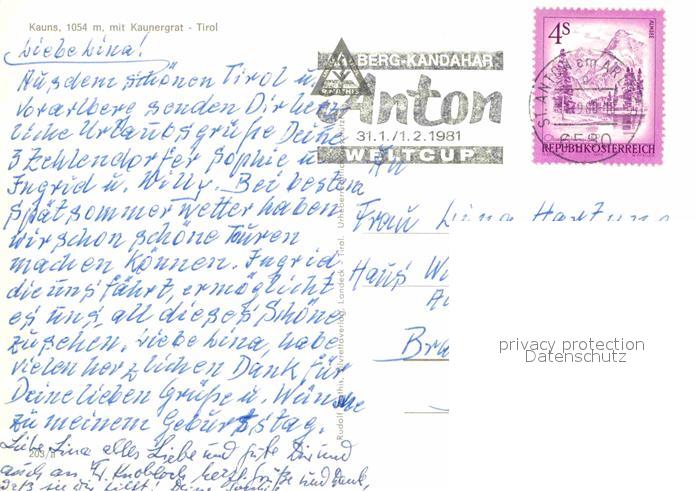 Kauns, 1054 m, mit Kaunergrat - Tirol
Liebe Lina!
Aus dem schönen Tirol u.
Vorarlberg senden Dir herz-
liche Urlaubsgrüße Deine
3 Zehlendorfer Sophie u.
Ingrid u. Willy. Bei besten
Spätsommerwetter haben
wir schon schöne Touren
machen können. Ingrid
die uns fährt, ermöglicht
es uns all dieses Schöne
zu sehen. Liebe Lina, habe
vielen herzlichen Dank für
Deine lieben Grüße u. Wünsche
zu meinem Geburtstag.
Liebe Lina alles Liebe und gute Dir und
auch an Fr. Knobloch herzl. Grüße und Dank,
daß sie Dir hilft! Deine
203/8
Rudolf Mathis, Silvrettaverlag, Landeck - Tirol.
BERG-KANDAHAR
St. Anton
31.1./1.2.1981
WELTCUP
4S
ALMSEE
ST. ANTON am
6580
REPUBLIK ÖSTERREICH
An
Frau Lina Hartung
Haus
privacy protection
Datenschutz